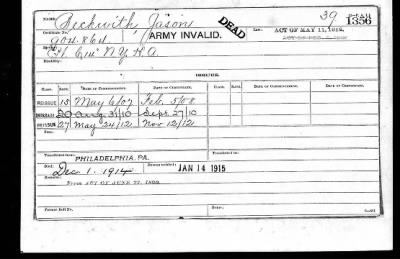 Beckwith Jason 39 DEAD
1336
Certificate No. 904.864 ARMY INVALID. DEAD Law: ACT OF MAY 11, 1912.
N.Y. H.A.
Disability:
ISSUES.
CLASS. RATE. DATE OF COMMENCEMENT. DATE OF CERTIFICATE. CLASS. RATE. DATE OF COMMENCEMENT. DATE OF CERTIFICATE.
REISSUE 15 May 6/07 Feb. 5/08
20 Aug. 31/10 Sept. 27/10
27 May 24/12 Nov 12/12
PHILADELPHIA, PA.
Died: Dec 1. 1914 JAN 14 1915
Remarks:
FROM ACT OF JUNE 27, 1890.